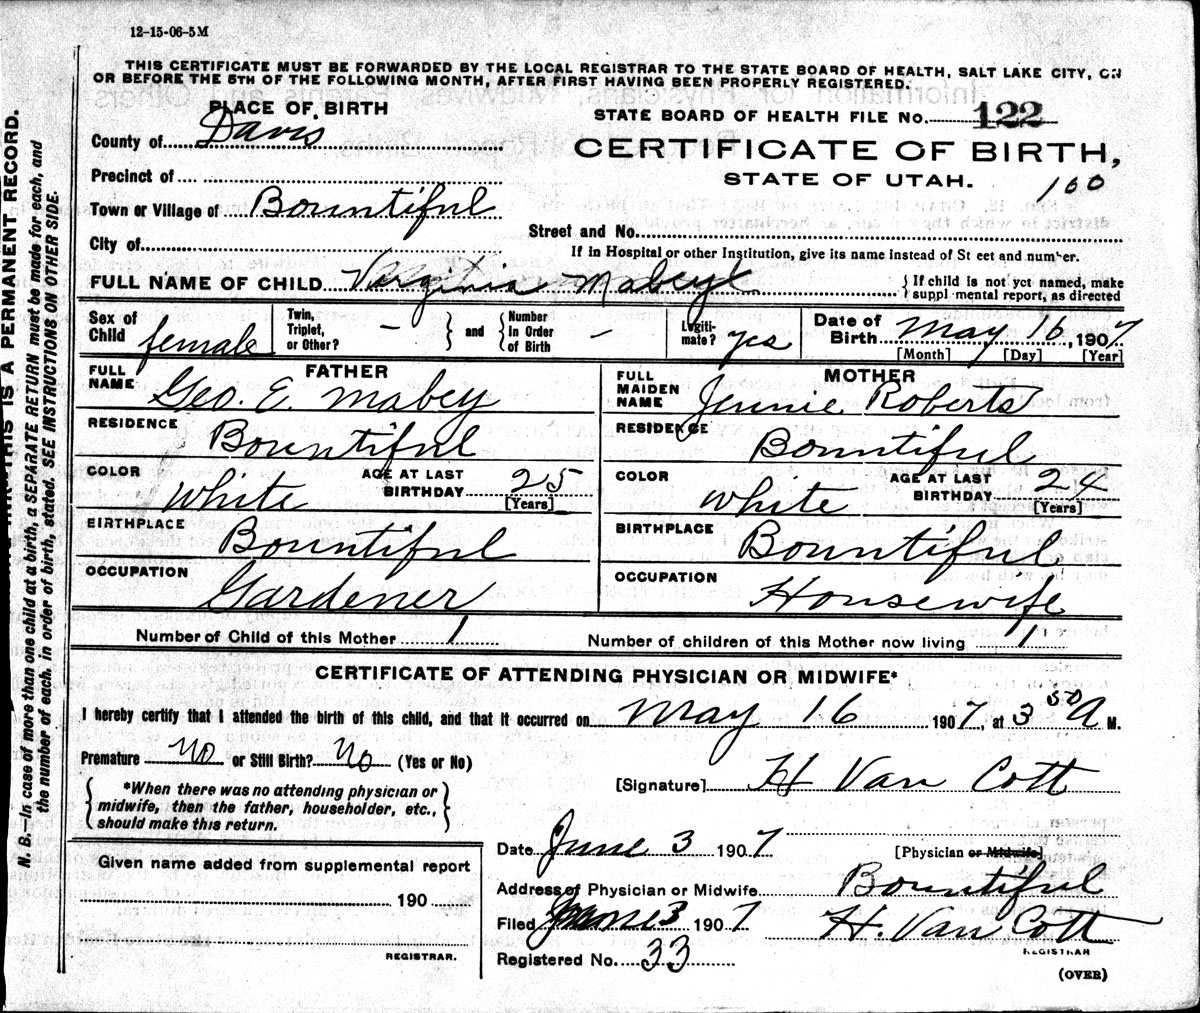 12-15-06-5M
THIS CERTIFICATE MUST BE FORWARDED BY THE LOCAL REGISTRAR TO THE STATE BOARD OF HEALTH, SALT LAKE CITY, ON
OR BEFORE THE 5TH OF THE FOLLOWING MONTH, AFTER FIRST HAVING BEEN PROPERLY REGISTERED.
PLACE OF BIRTH
STATE BOARD OF HEALTH FILE No. 122
County of Davis
CERTIFICATE OF BIRTH,
STATE OF UTAH. 160
Precinct of
Town or Village of Bountiful
Street and No.
City of
If in Hospital or other Institution, give its name instead of St eet and number.
FULL NAME OF CHILD Virginia Mabey
If child is not yet named, make
suppl mental report, as directed
Sex of Child female
Twin, Triplet, or Other? –
and
Number in Order of Birth –
Legiti-mate? yes
Date of Birth May 16, 1907
[Month] [Day] [Year]
FATHER
FULL NAME Geo. E. Mabey
RESIDENCE Bountiful
COLOR White
AGE AT LAST BIRTHDAY 25
[Years]
BIRTHPLACE Bountiful
OCCUPATION Gardener
MOTHER
FULL MAIDEN NAME Jennie Roberts
RESIDENCE Bountiful
COLOR White
AGE AT LAST BIRTHDAY 24
[Years]
BIRTHPLACE Bountiful
OCCUPATION Housewife
Number of Child of this Mother 1
Number of children of this Mother now living 1
CERTIFICATE OF ATTENDING PHYSICIAN OR MIDWIFE*
I hereby certify that I attended the birth of this child, and that it occurred on May 16 1907, at 3 50 A M.
Premature No or Still Birth? No (Yes or No)
[Signature] H Van Cott
*When there was no attending physician or
midwife, then the father, householder, etc.,
should make this return.
Date June 3 1907
[Physician or Midwife]
Given name added from supplemental report
190
REGISTRAR.
Address of Physician or Midwife Bountiful
Filed June 3 1907 H. Van Cott
REGISTRAR
Registered No. 33
(OVER)
THIS IS A PERMANENT RECORD.
N. B.—In case of more than one child at a birth, a SEPARATE RETURN must be made for each, and
the number of each, in order of birth, stated. SEE INSTRUCTIONS ON OTHER SIDE.